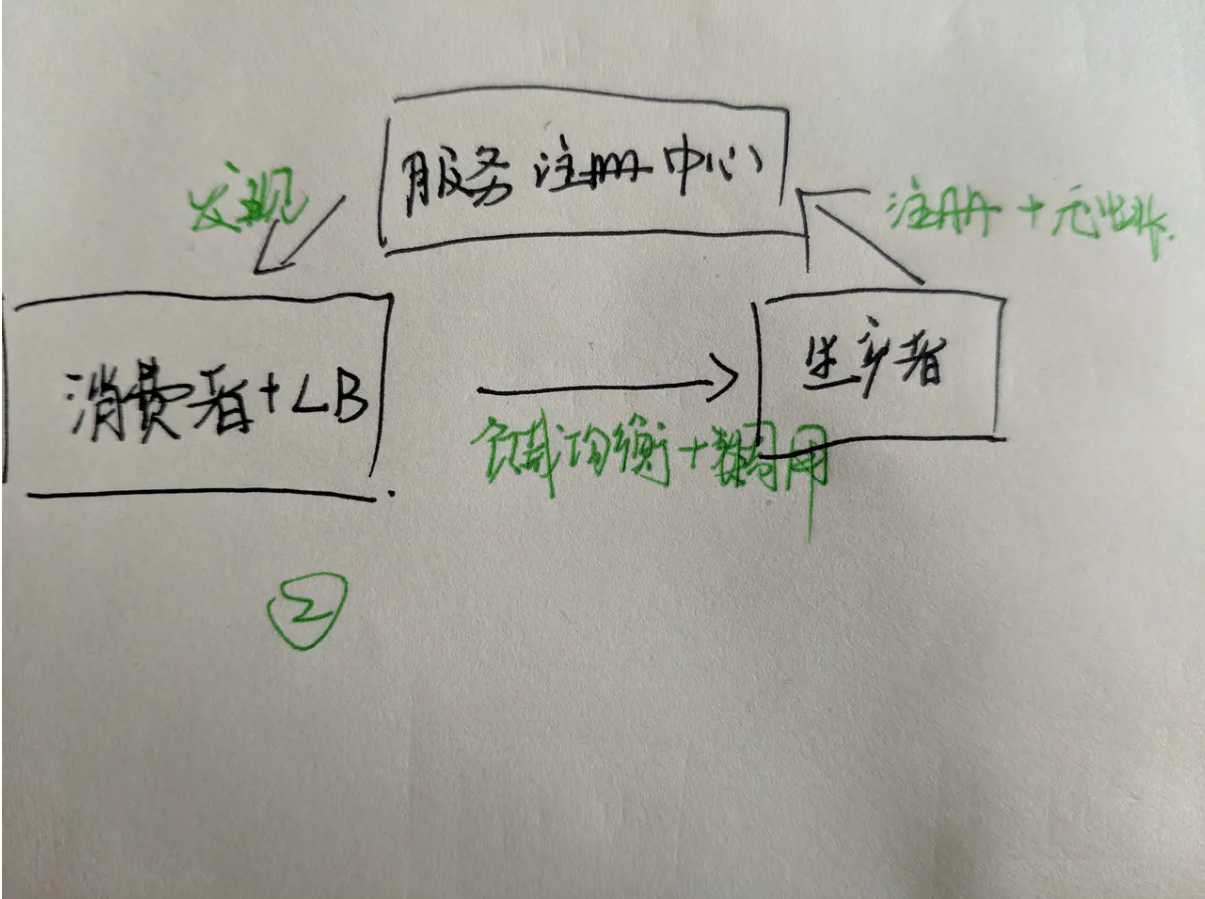 服务注册中心
发现
注册+
消费者+LB
生产者
负载均衡+调用
2